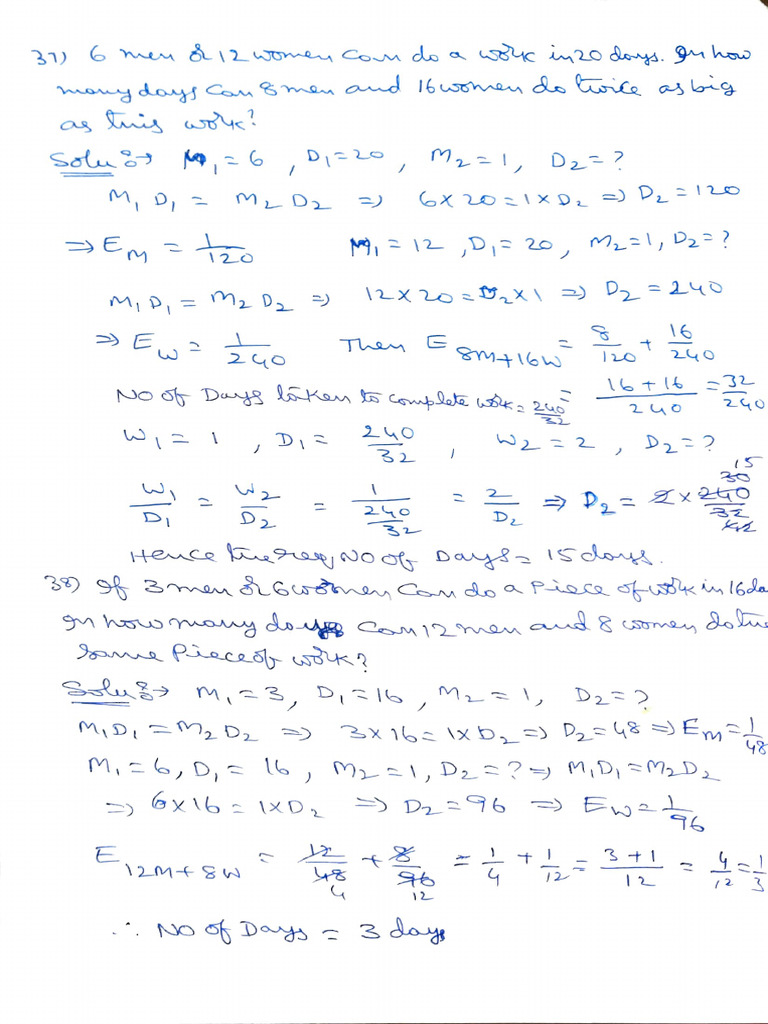 37) 6 men or 12 women can do a work in 20 days. In how
many days can 8 men and 16 women do twice as big
as this work?
Solu :→ M₁ = 6 , D₁ = 20 , M₂ = 1, D₂ = ?
M₁ D₁ = M₂ D₂ ⇒ 6 × 20 = 1 × D₂ ⇒ D₂ = 120
⇒ E_M = 1/120 M₁ = 12 , D₁ = 20 , M₂ = 1, D₂ = ?
M₁ D₁ = M₂ D₂ ⇒ 12 × 20 = D₂ × 1 ⇒ D₂ = 240
⇒ E_W = 1/240 Then E_8M+16W = 8/120 + 16/240
No of Days taken to complete work = 240/32 = 16+16/240 = 32/240
W₁ = 1 , D₁ = 240/32 , W₂ = 2 , D₂ = ?
W₁/D₁ = W₂/D₂ = 1/(240/32) = 2/D₂ ⇒ D₂ = 2 × 240/32 30 15
Hence the req No of Days = 15 days.
38) If 3 men or 6 women can do a piece of work in 16 da
In how many days can 12 men and 8 women do the
same piece of work?
Solu :→ M₁ = 3, D₁ = 16 , M₂ = 1, D₂ = ?
M₁D₁ = M₂D₂ ⇒ 3 × 16 = 1 × D₂ ⇒ D₂ = 48 ⇒ E_M = 1/48
M₁ = 6, D₁ = 16 , M₂ = 1, D₂ = ? ⇒ M₁D₁ = M₂D₂
⇒ 6 × 16 = 1 × D₂ ⇒ D₂ = 96 ⇒ E_W = 1/96
E_12M+8W = 12/48 4 + 8/96 12 = 1/4 + 1/12 = 3+1/12 = 4/12 = 1/3
∴ No of Days = 3 days